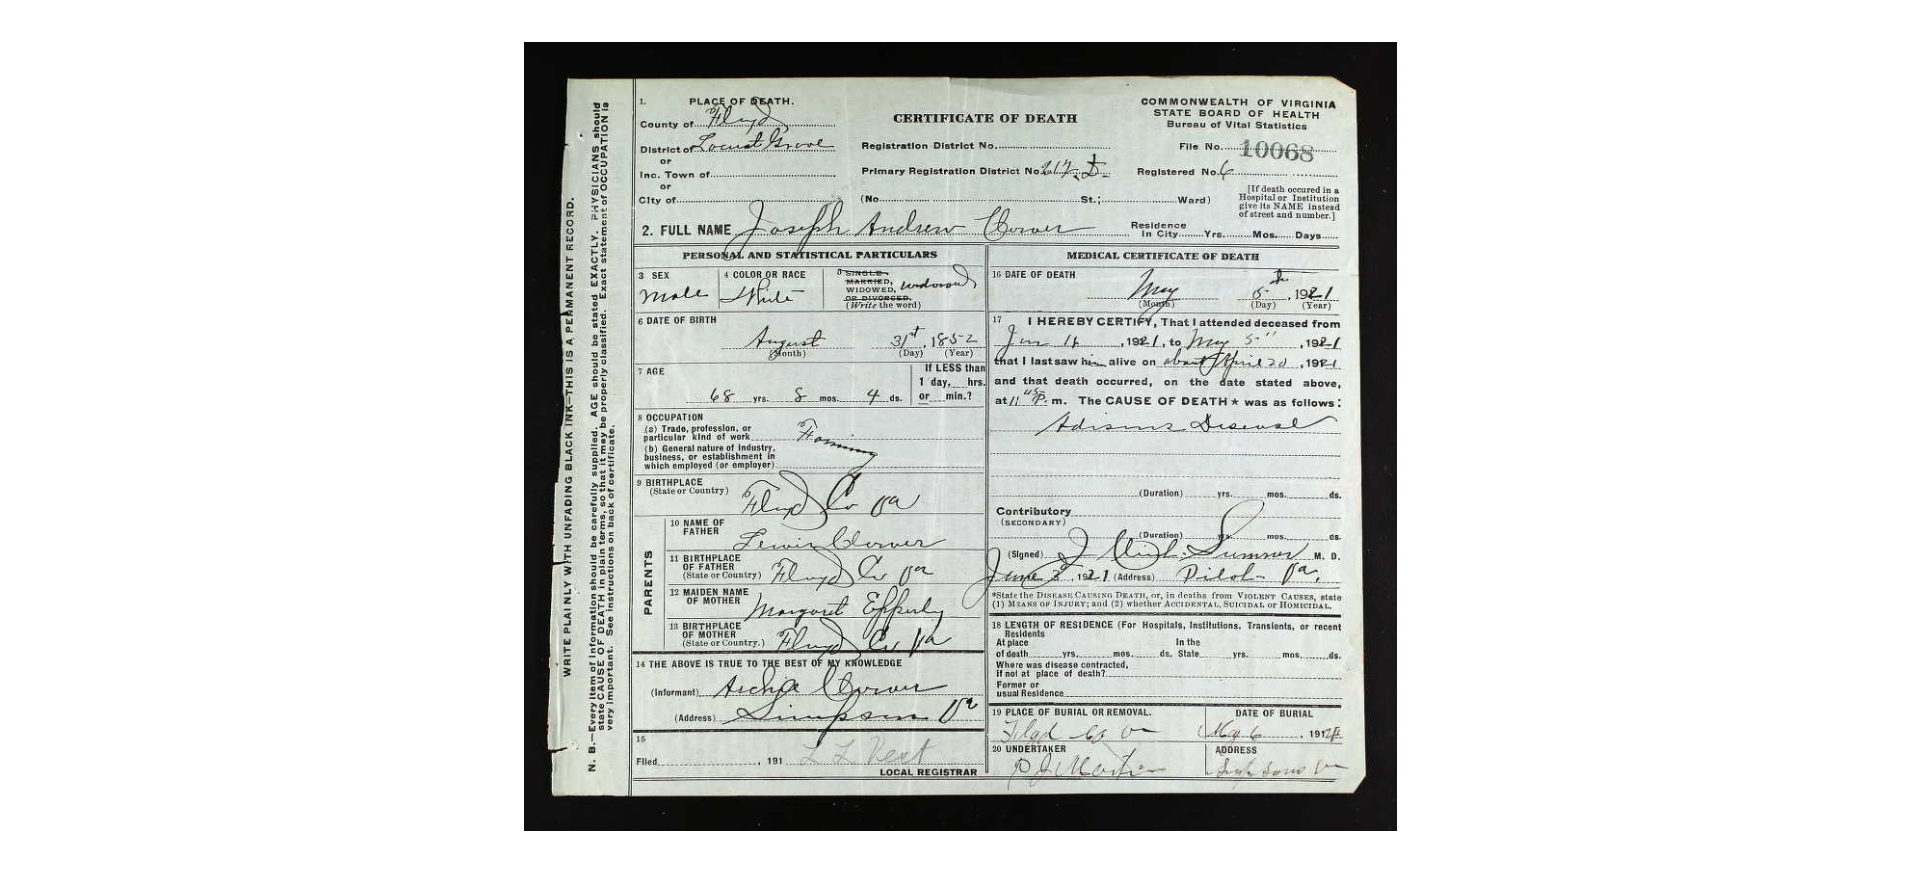 WRITE PLAINLY WITH UNFADING BLACK INK—THIS IS A PERMANENT RECORD.
N. B.—Every item of information should be carefully supplied. AGE should be stated EXACTLY. PHYSICIANS should
state CAUSE OF DEATH in plain terms, so that it may be properly classified. Exact statement of OCCUPATION is
very important. See instructions on back of certificate.
1. PLACE OF DEATH.
County of Floyd
District of Locust Grove
or
Inc. Town of
or
City of
CERTIFICATE OF DEATH
Registration District No.
Primary Registration District No. 217 D
(No. St.; Ward)
COMMONWEALTH OF VIRGINIA
STATE BOARD OF HEALTH
Bureau of Vital Statistics
File No. 10068
Registered No. 6
[If death occured in a
Hospital or Institution
give its NAME instead
of street and number.]
2. FULL NAME Joseph Andrew
Residence
In City Yrs. Mos. Days
PERSONAL AND STATISTICAL PARTICULARS
3 SEX
Male
4 COLOR OR RACE
White
5 SINGLE,
MARRIED,
WIDOWED,
OR DIVORCED.
(Write the word)
widowed
6 DATE OF BIRTH
August 31st, 1852
(Month) (Day) (Year)
7 AGE
68 yrs. 8 mos. 4 ds.
If LESS than
1 day, hrs.
or min.?
8 OCCUPATION
(a) Trade, profession, or
particular kind of work
(b) General nature of industry,
business, or establishment in
which employed (or employer)
9 BIRTHPLACE
(State or Country)
Floyd Co Va
PARENTS
10 NAME OF
FATHER
Lewis
11 BIRTHPLACE
OF FATHER
(State or Country)
Floyd Co Va
12 MAIDEN NAME
OF MOTHER
Margaret Epperly
13 BIRTHPLACE
OF MOTHER
(State or Country.)
Floyd Co Va
14 THE ABOVE IS TRUE TO THE BEST OF MY KNOWLEDGE
(Informant) Archie
(Address) Simpsons Va
15
Filed , 191
L L Vest
LOCAL REGISTRAR
MEDICAL CERTIFICATE OF DEATH
16 DATE OF DEATH
May 5th, 1921
(Month) (Day) (Year)
17 I HEREBY CERTIFY, That I attended deceased from
, 1921, to May 5", 1921
that I last saw him alive on about April 20, 1921
and that death occurred, on the date stated above,
at 11 P. m. The CAUSE OF DEATH ★ was as follows:
Adisons Disease
(Duration) yrs. mos. ds.
Contributory
(SECONDARY)
(Duration) yrs. mos. ds.
(Signed) J Sumner M. D.
June 3, 1921 (Address) Pilot Va.
*State the DISEASE CAUSING DEATH, or, in deaths from VIOLENT CAUSES, state
(1) MEANS OF INJURY; and (2) whether ACCIDENTAL, SUICIDAL or HOMICIDAL.
18 LENGTH OF RESIDENCE (For Hospitals, Institutions, Transients, or recent
Residents
At place In the
of death yrs. mos. ds. State yrs. mos. ds.
Where was disease contracted,
if not at place of death?
Former or
usual Residence
19 PLACE OF BURIAL OR REMOVAL.
DATE OF BURIAL
May 6, 191
20 UNDERTAKER
ADDRESS